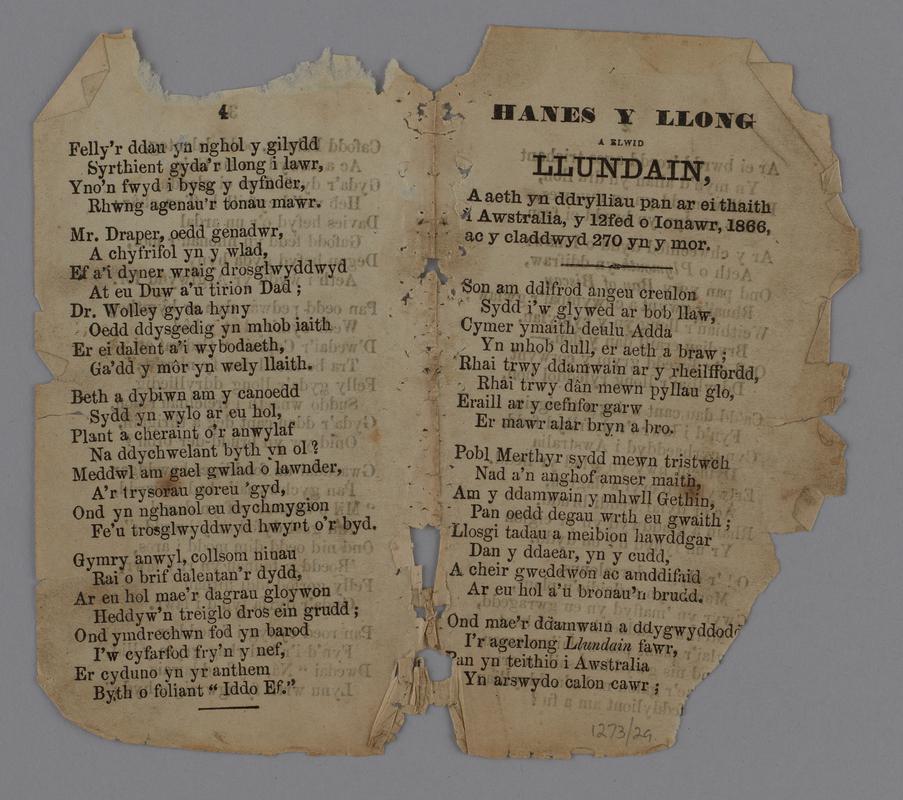 4
Felly'r ddau yn nghol y gilydd
Syrthient gyda'r llong i lawr,
Yno'n fwyd i bysg y dyfnder,
Rhwng agenau'r tonau mawr.
Mr. Draper, oedd genadwr,
A chyfrifol yn y wlad,
Ef a'i dyner wraig drosglwyddwyd
At eu Duw a'u tirion Dad ;
Dr. Wolley gyda hyny
Oedd ddysgedig yn mhob iaith
Er ei dalent a'i wybodaeth,
Ga'dd y môr yn wely llaith.
Beth a dybiwn am y canoedd
Sydd yn wylo ar eu hol,
Plant a cheraint o'r anwylaf
Na ddychwelant byth yn ol ?
Meddwl am gael gwlad o lawnder,
A'r trysorau goreu 'gyd,
Ond yn nghanol eu dychmygion
Fe'u trosglwyddwyd hwynt o'r byd.
Gymry anwyl, collsom ninau
Rai o brif dalentan'r dydd,
Ar eu hol mae'r dagrau gloywon
Heddyw'n treiglo dros ein grudd ;
Ond ymdrechwn fod yn barod
I'w cyfarfod fry'n y nef,
Er cyduno yn yr anthem
Byth o foliant " Iddo Ef."
HANES Y LLONG
A ELWID
LLUNDAIN,
A aeth yn ddrylliau pan ar ei thaith
i Awstralia, y 12fed o Ionawr, 1866,
ac y claddwyd 270 yn y mor.
Son am ddIfrod angeu creulon
Sydd i'w glywed ar bob llaw,
Cymer ymaith deulu Adda
Yn mhob dull, er aeth a braw ;
Rhai trwy ddamwain ar y rheilffordd,
Rhai trwy dân mewn pyllau glo,
Eraill ar y cefnfor garw
Er mawr alar bryn a bro.
Pobl Merthyr sydd mewn tristwch
Nad a'n anghof amser maith,
Am y ddamwain y mhwll Gethin,
Pan oedd degau wrth eu gwaith ;
Llosgi tadau a meibion hawddgar
Dan y ddaear, yn y cudd,
A cheir gweddwon ac amddifaid
Ar eu hol a'u bronau'n brudd.
Ond mae'r ddamwain a ddygwyddodd
I'r agerlong Llundain fawr,
Pan yn teithio i Awstralia
Yn arswydo calon cawr ;
1273/29